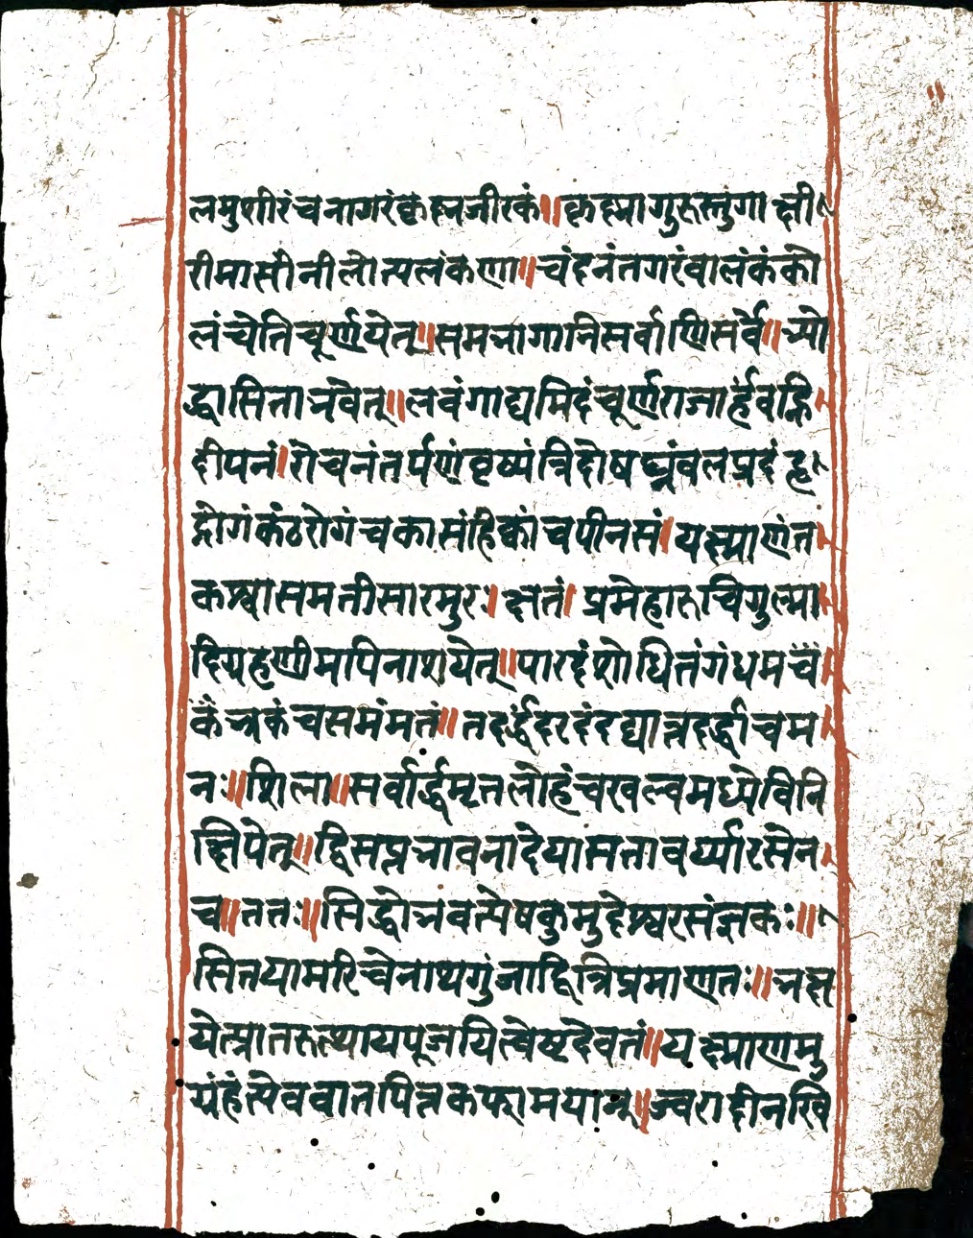 लमुशीरंचनागरंकृह्नजीरकं॥कृह्मागुरुस्तुंगाक्षी
रीमासीनीलोत्पलंकणा॥चंदनंतगरंवालंकंको
लंचेतिचूर्णयेत्॥समभागानिसर्वाणिसर्वे॥भ्यो
र्द्धासिताभवेत्॥लवंगाद्यमिदंचूर्णराजार्हंवह्नि
दीपनं।रोचनंतर्पणंवृष्यंत्रिदोषघ्नंवलप्रदंहृ
द्रोगंकंठरोगंचकासंहिक्कांचपीनसं।यक्ष्माणंत
कश्वासमतीसारमुरः।क्षतं।प्रमेहारुचिगुल्मा
दिग्रहणीमपिनाशयेत्॥पारदंशोधितंगंधमभ्रं
कंभ्रकंचसमंमतं॥तदर्द्धंदरदंदद्यात्तदर्द्धाचम
नः॥शिला॥सर्वार्द्धमृतलोहंचखल्वमध्येविनि
क्षिपेत्॥द्विसप्तभावनादेयासतावर्य्यारसेन
च॥ततः॥सिद्धोभवत्येषकुमुदेश्वरसंज्ञकः॥
सितयामरिचेनाथगुंजाद्वित्रिप्रमाणतः॥भक्ष
येत्प्रातरुत्थायपूजयित्वेष्टदेवतं॥यक्ष्माणमु
यंहंत्येववातपित्तकफामयान्॥ज्वरादीनखि